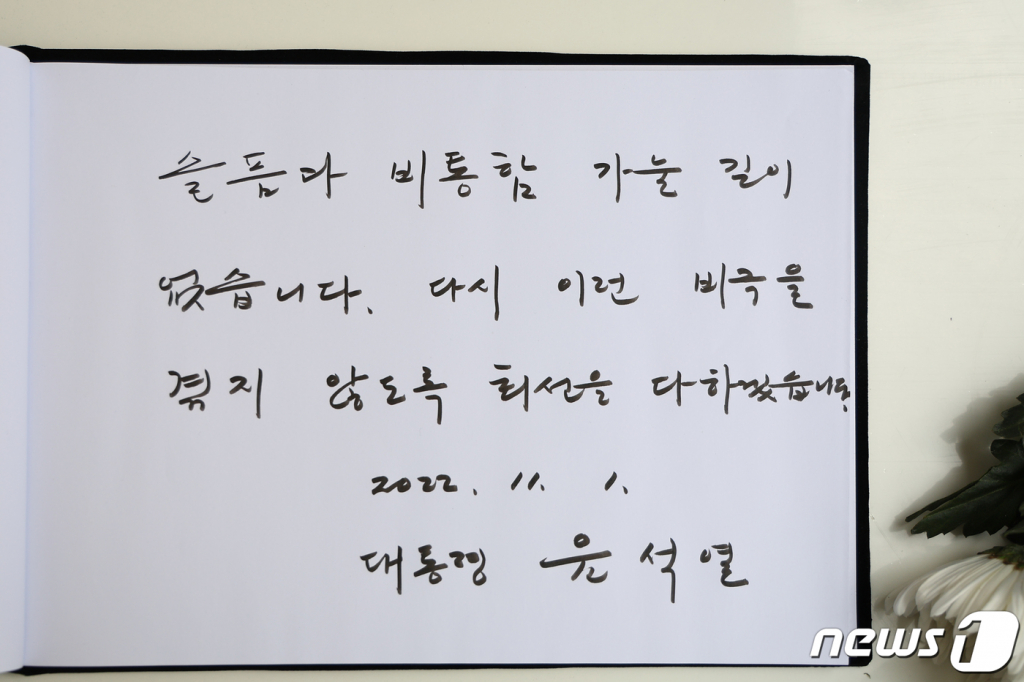 슬픔과 비통함 가눌 길이
없습니다. 다시 이런 비극을
겪지 않도록 최선을 다하겠습니다.
2022. 11. 1.
대통령 윤석열
news1